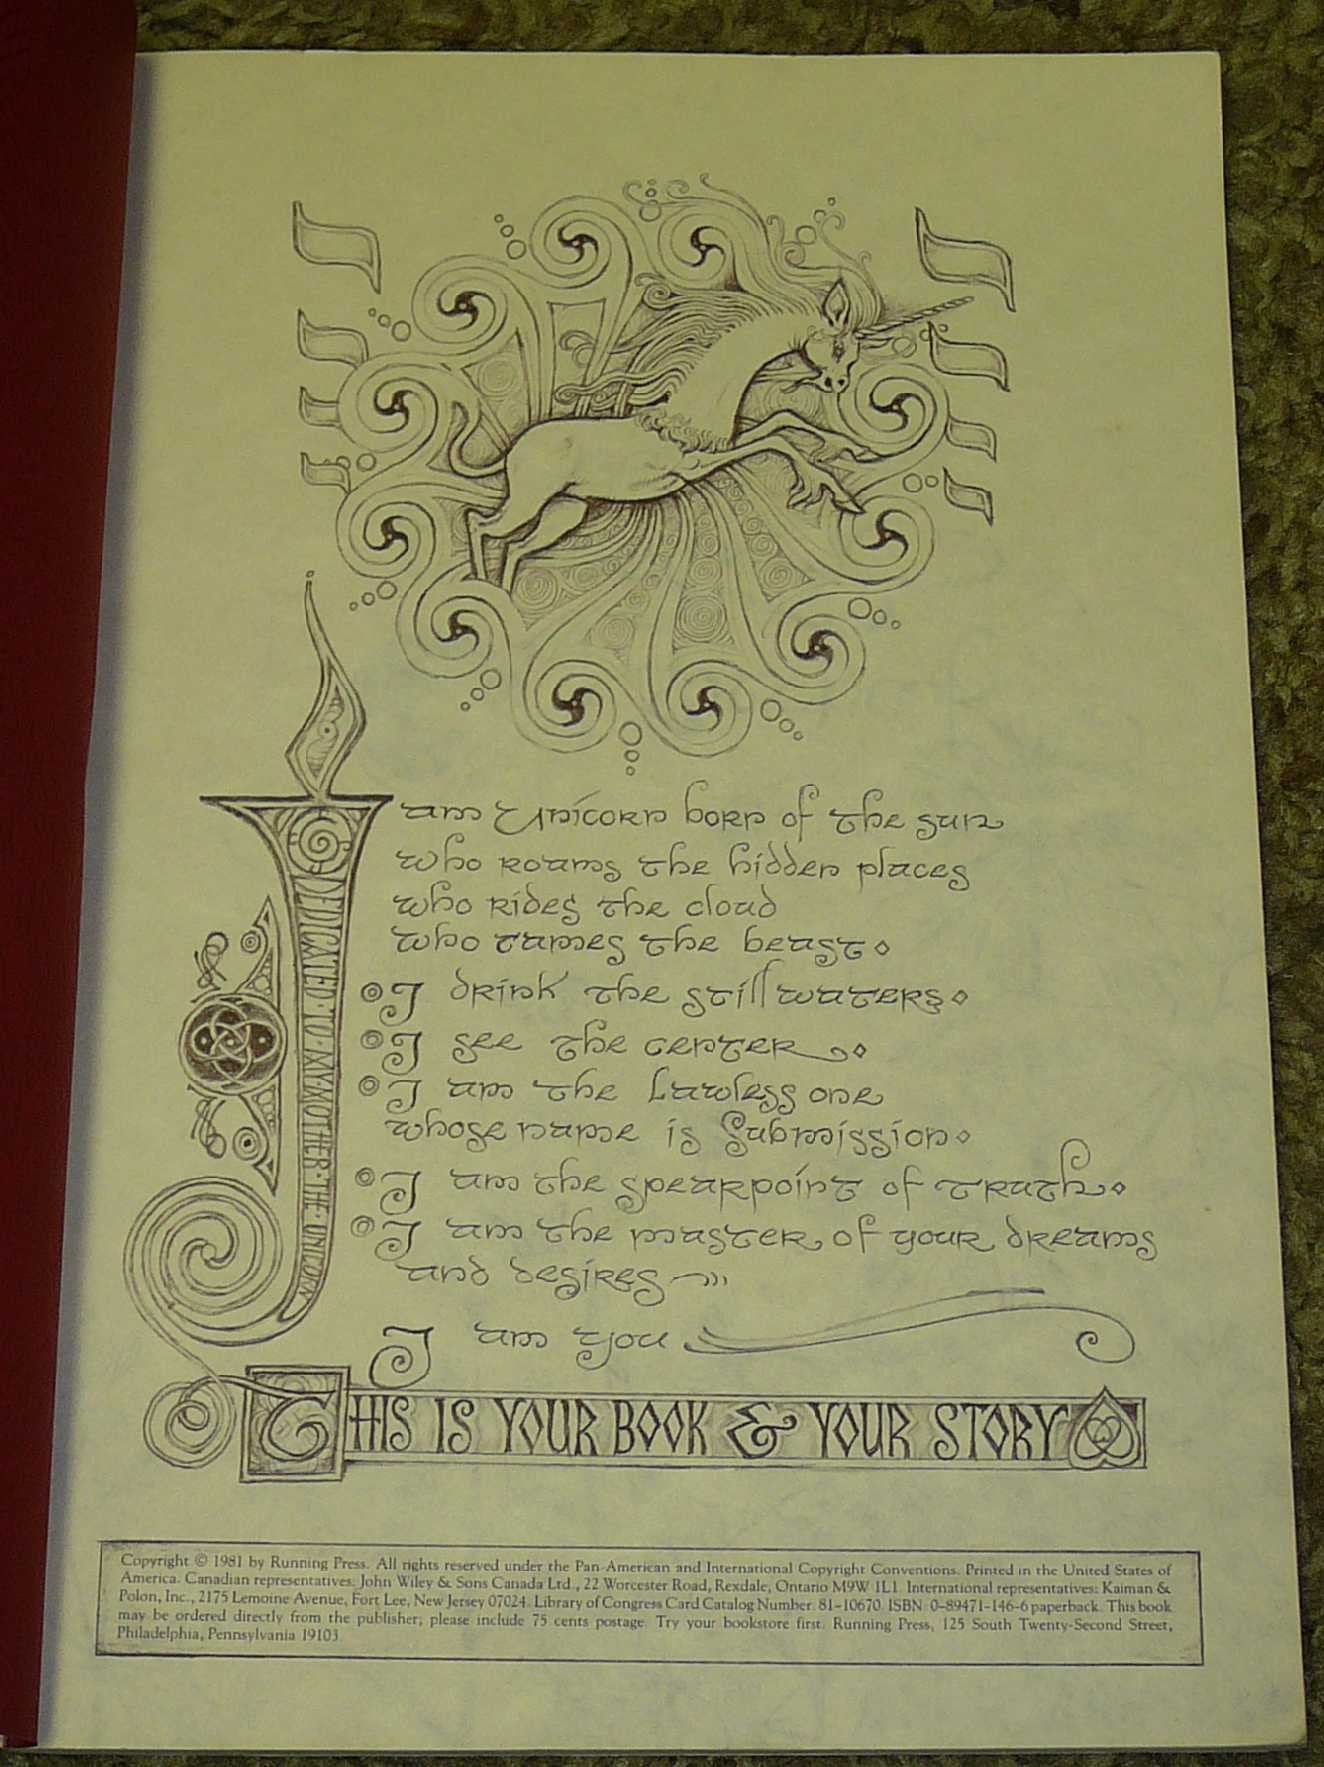 I am Unicorn born of the sun
who roams the hidden places
who rides the cloud
who tames the beast
I drink the still waters
I see the center
I am the Lawless one
whose name is Submission
I am the spearpoint of truth
I am the master of your dreams
and desires
I am you
DEDICATED · TO · MY · MOTHER · THE · UNICORN
THIS IS YOUR BOOK & YOUR STORY
Copyright © 1981 by Running Press. All rights reserved under the Pan-American and International Copyright Conventions. Printed in the United States of
America. Canadian representatives: John Wiley & Sons Canada Ltd., 22 Worcester Road, Rexdale, Ontario M9W 1L1. International representatives: Kaiman &
Polon, Inc., 2175 Lemoine Avenue, Fort Lee, New Jersey 07024. Library of Congress Card Catalog Number: 81-10670. ISBN: 0-89471-146-6 paperback. This book
may be ordered directly from the publisher; please include 75 cents postage. Try your bookstore first. Running Press, 125 South Twenty-Second Street,
Philadelphia, Pennsylvania 19103